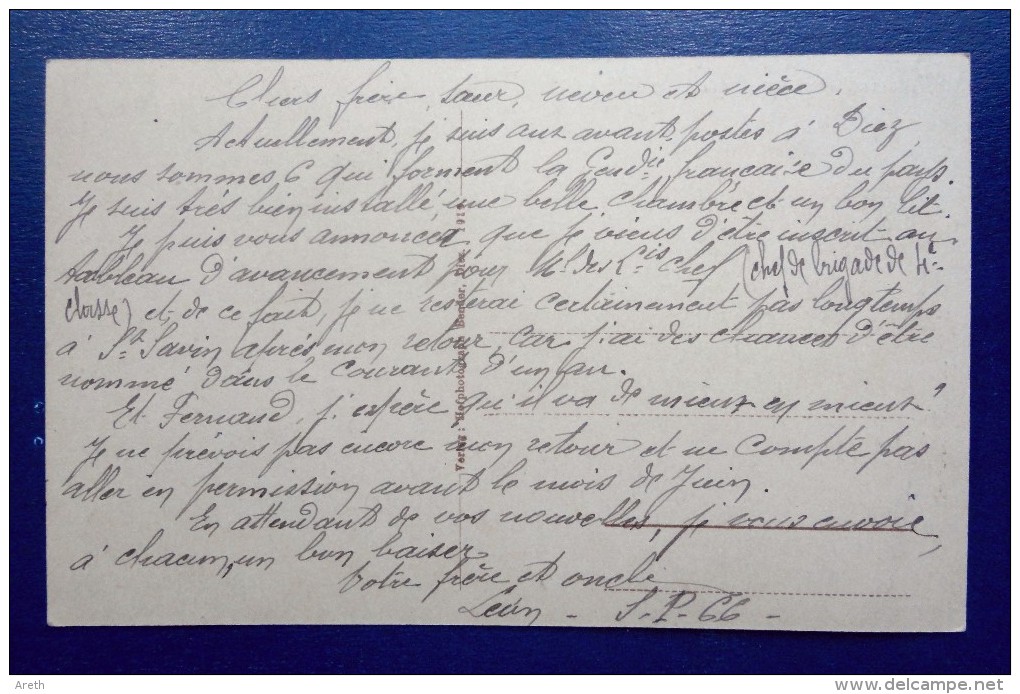 Chers frère, sœur, neveu et nièce.
Actuellement, je suis aux avant postes à Diez,
nous sommes 6 qui forment la Gendie française du pays.
Je suis très bien installé, une belle chambre et un bon lit.
Je puis vous annoncer que je viens d'être inscrit au
tableau d'avancement pour Mal des Lgis chef (chef de brigade de 4e
classe) et, de ce fait, je ne resterai certainement pas longtemps
à St Savin après mon retour, car j'ai des chances d'être
nommé dans le courant d'un an.
Et Fernand, j'espère qu'il va de mieux en mieux?
Je ne prévois pas encore mon retour et ne compte pas
aller en permission avant le mois de Juin.
En attendant de vos nouvelles, je vous envoie,
à chacun, un bon baiser.
Votre frère et oncle
Léon - S.P. 66 -
Verlag: Hofphotograph
Areth
www.delcampe.net